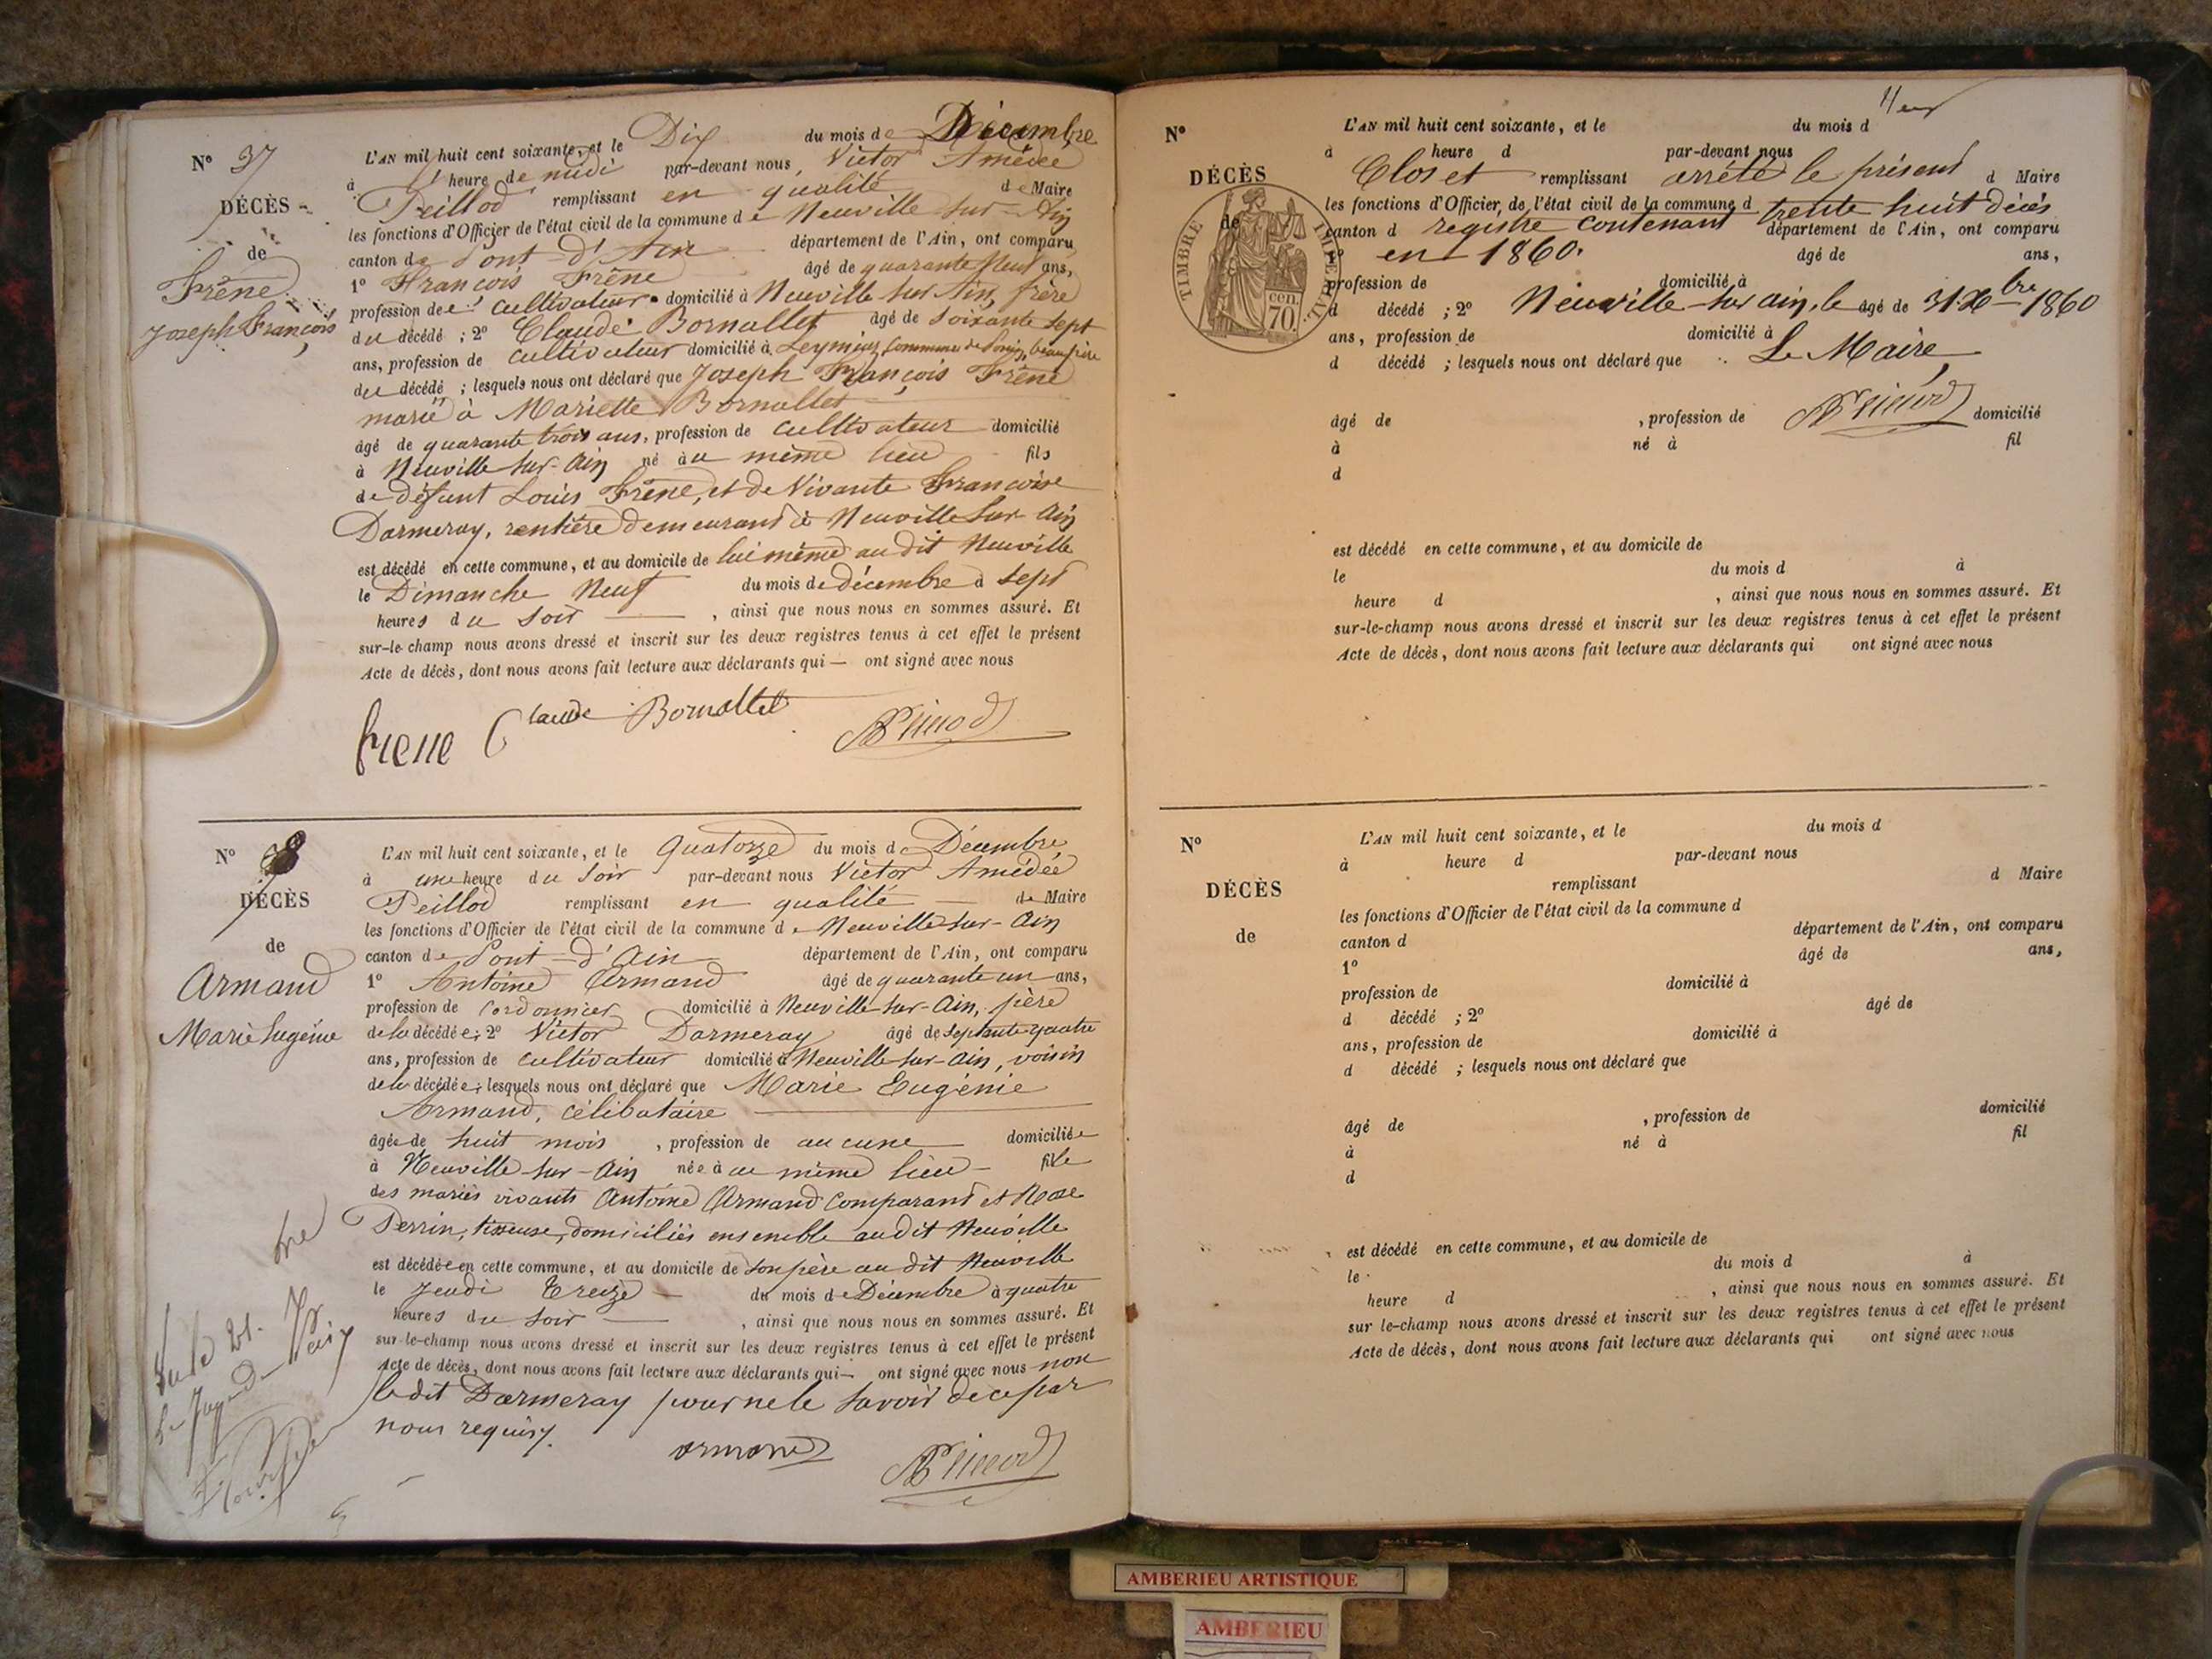 N° 37
DÉCÈS
de
Frêne
Joseph François
L'AN mil huit cent soixante, et le Dix du mois de Décembre
à heure de midi par-devant nous Victor Amédée
Peillod remplissant en qualité de Maire
les fonctions d'Officier de l'état civil de la commune de Neuville sur Ain
canton de Pont d'Ain département de l'Ain, ont comparu
1° François Frêne âgé de quarante neuf ans,
profession de cultivateur domicilié à Neuville sur Ain, frère
du décédé ; 2° Claude Bornallet âgé de soixante sept
ans, profession de cultivateur domicilié à Leymiaz commune de beaupère
du décédé ; lesquels nous ont déclaré que Joseph François Frêne
marié à Mariette Bornallet
âgé de quarante trois ans, profession de cultivateur domicilié
à Neuville sur-Ain né au même lieu fils
de défunt Louis Frêne, et de Vivante Françoise
Darmeray, rentière demeurant à Neuville sur Ain
est décédé en cette commune, et au domicile de lui même au dit Neuville
le Dimanche Neuf du mois de décembre à sept
heures du soir , ainsi que nous nous en sommes assuré. Et
sur-le-champ nous avons dressé et inscrit sur les deux registres tenus à cet effet le présent
Acte de décès, dont nous avons fait lecture aux déclarants qui — ont signé avec nous
frene Claude Bornallet
N° 38
DÉCÈS
de
Armand
Marie Eugénie
L'AN mil huit cent soixante, et le Quatorze du mois de Décembre
à une heure du soir par-devant nous Victor Amédée
Peillod remplissant en qualité de Maire
les fonctions d'Officier de l'état civil de la commune de Neuville sur-Ain
canton de Pont-d'Ain département de l'Ain, ont comparu
1° Antoine Armand âgé de quarante un ans,
profession de cordonnier domicilié à Neuville sur-Ain, père
de la décédée ; 2° Victor Darmeray âgé de septante-quatre
ans, profession de cultivateur domicilié à Neuville sur-Ain, voisin
de la décédée ; lesquels nous ont déclaré que Marie Eugénie
Armand, célibataire
âgée de huit mois , profession de aucune domiciliée
à Neuville-sur-Ain née au même lieu fille
des mariés vivants Antoine Armand comparant et Rose
Perrin, tisseuse, domiciliés ensemble audit Neuville
est décédée en cette commune, et au domicile de son père au dit Neuville
le Jeudi Treize du mois de Décembre à quatre
heures du soir , ainsi que nous nous en sommes assuré. Et
sur-le-champ nous avons dressé et inscrit sur les deux registres tenus à cet effet le présent
Acte de décès, dont nous avons fait lecture aux déclarants qui — ont signé avec nous non
ledit Darmeray pour ne le savoir de ce par
nous requis.
armand
N°
DÉCÈS
de
TIMBRE IMPERIAL
70 cen.
L'AN mil huit cent soixante, et le du mois d
à heure d par-devant nous
Clos et remplissant arrêté le présent d Maire
les fonctions d'Officier de l'état civil de la commune d trente huit décès
canton d registre contenant département de l'Ain, ont comparu
1° en 1860. âgé de ans,
profession de domicilié à
d décédé ; 2° Neuville-sur ain, le âgé de 31 Xbre 1860
ans, profession de domicilié à
d décédé ; lesquels nous ont déclaré que Le Maire
âgé de , profession de domicilié
à né à fil
d
est décédé en cette commune, et au domicile de
le du mois d à
heure d , ainsi que nous nous en sommes assuré. Et
sur-le-champ nous avons dressé et inscrit sur les deux registres tenus à cet effet le présent
Acte de décès, dont nous avons fait lecture aux déclarants qui ont signé avec nous
N°
DÉCÈS
de
L'AN mil huit cent soixante, et le du mois d
à heure d par-devant nous
remplissant d Maire
les fonctions d'Officier de l'état civil de la commune d
canton d département de l'Ain, ont comparu
1° âgé de ans,
profession de domicilié à
d décédé ; 2° âgé de
ans, profession de domicilié à
d décédé ; lesquels nous ont déclaré que
âgé de , profession de domicilié
à né à fil
d
est décédé en cette commune, et au domicile de
le du mois d à
heure d , ainsi que nous nous en sommes assuré. Et
sur le-champ nous avons dressé et inscrit sur les deux registres tenus à cet effet le présent
Acte de décès, dont nous avons fait lecture aux déclarants qui ont signé avec nous
AMBERIEU ARTISTIQUE
AMBERIEU